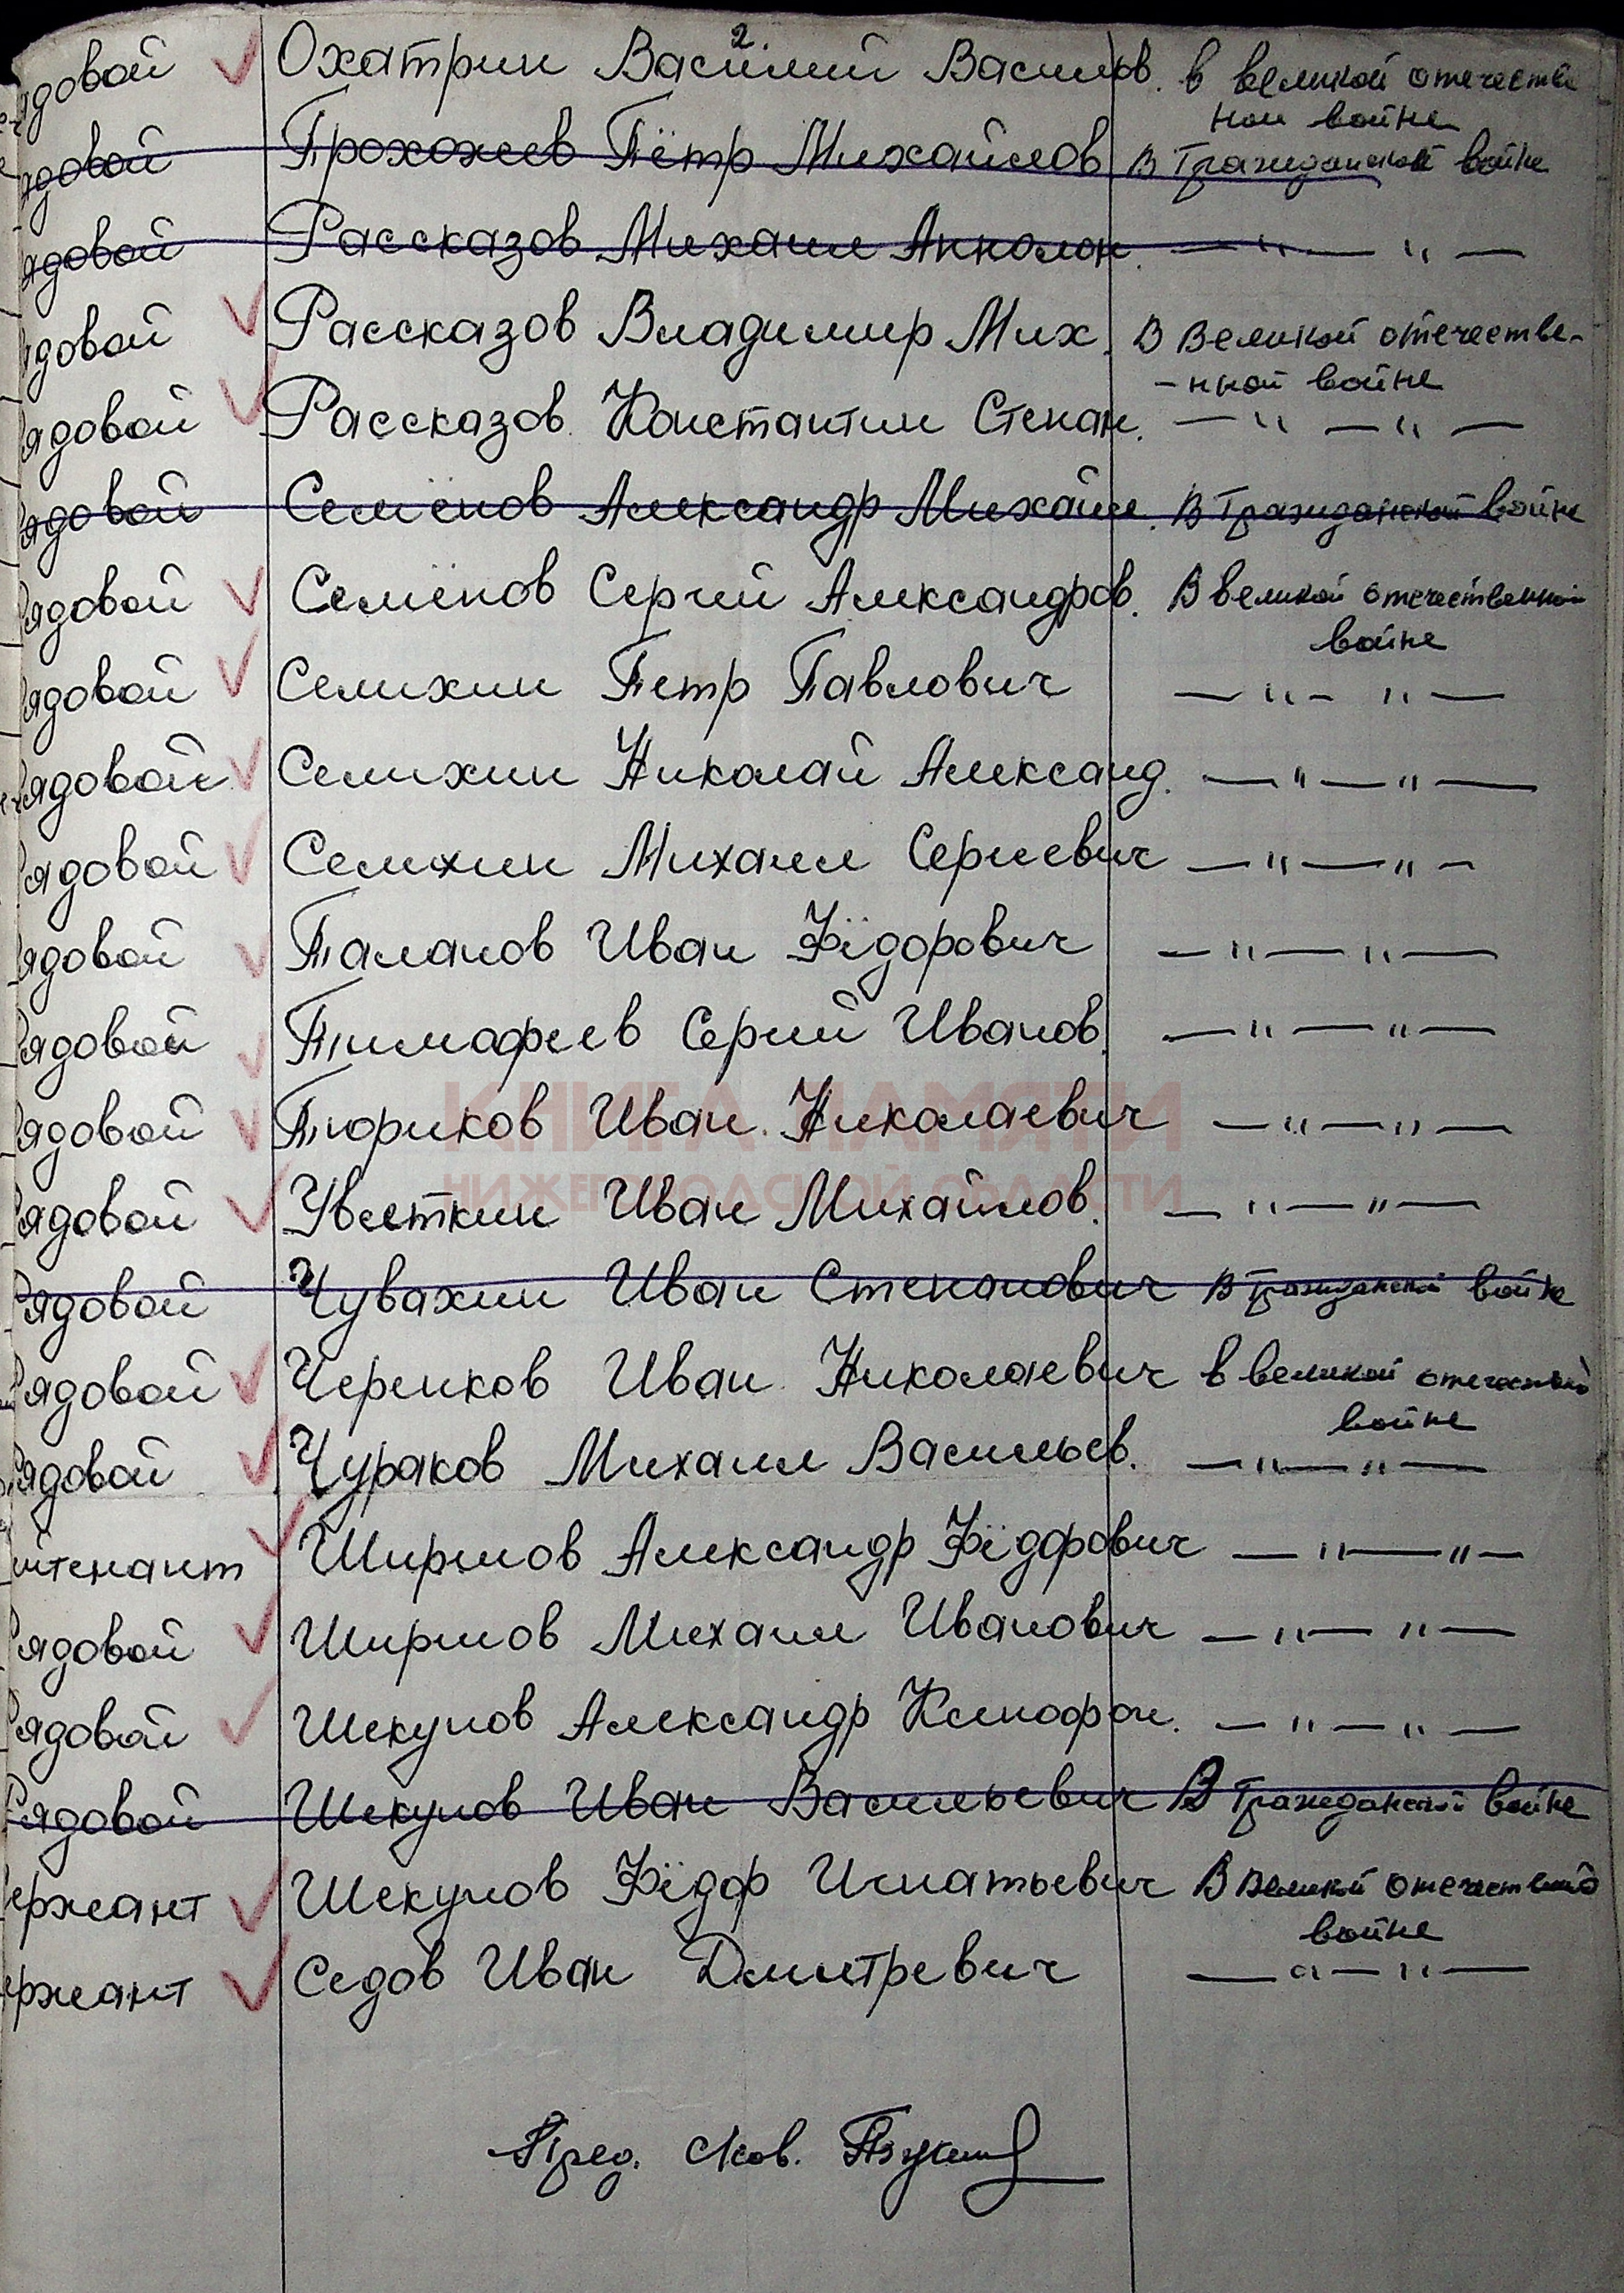 2.
ядовой Охатрин Василий Васильев. в великой отечестве
ной войне
ядовой Прохожев Пётр Михайлов В Гражданской войне
ядовой Рассказов Михаил Апполон. — " — " —
ядовой Рассказов Владимир Мих. В Великой отечестве-
-нной войне
ядовой Рассказов Константин Степан. — " — " —
ядовой Семёнов Александр Михайл. В Гражданской войне
Рядовой Семёнов Сергий Александров. В великой отечественной
войне
Рядовой Семихин Петр Павлович — " — " —
Рядовой Семихин Николай Александ. — " — " —
Рядовой Семихин Михаил Сергиевич — " — " —
Рядовой Таланов Иван Фёдорович — " — " —
Рядовой Тимафеев Сергий Иванов. — " — " —
Рядовой Тюриков Иван Николаевич — " — " —
КНИГА ПАМЯТИ
НИЖЕГОРОДСКОЙ ОБЛАСТИ
Рядовой Уветкин Иван Михайлов. — " — " —
Рядовой Чувахин Иван Степанович В Гражданской войне
Рядовой Черпков Иван Николаевич в великой отечествной
войне
Рядовой Чураков Михаил Васильев. — " — " —
йтенант Ширшов Александр Фёдорович — " — " —
Рядовой Ширшов Михаил Иванович — " — " —
Рядовой Шекунов Александр Ксинофон. — " — " —
Рядовой Шекунов Иван Васильевич В Гражданской войне
ержант Шекунов Фёдор Игнатьевич В Великой отечествной
войне
ержант Седов Иван Дмитревич — " — " —
Пред. с/сов.